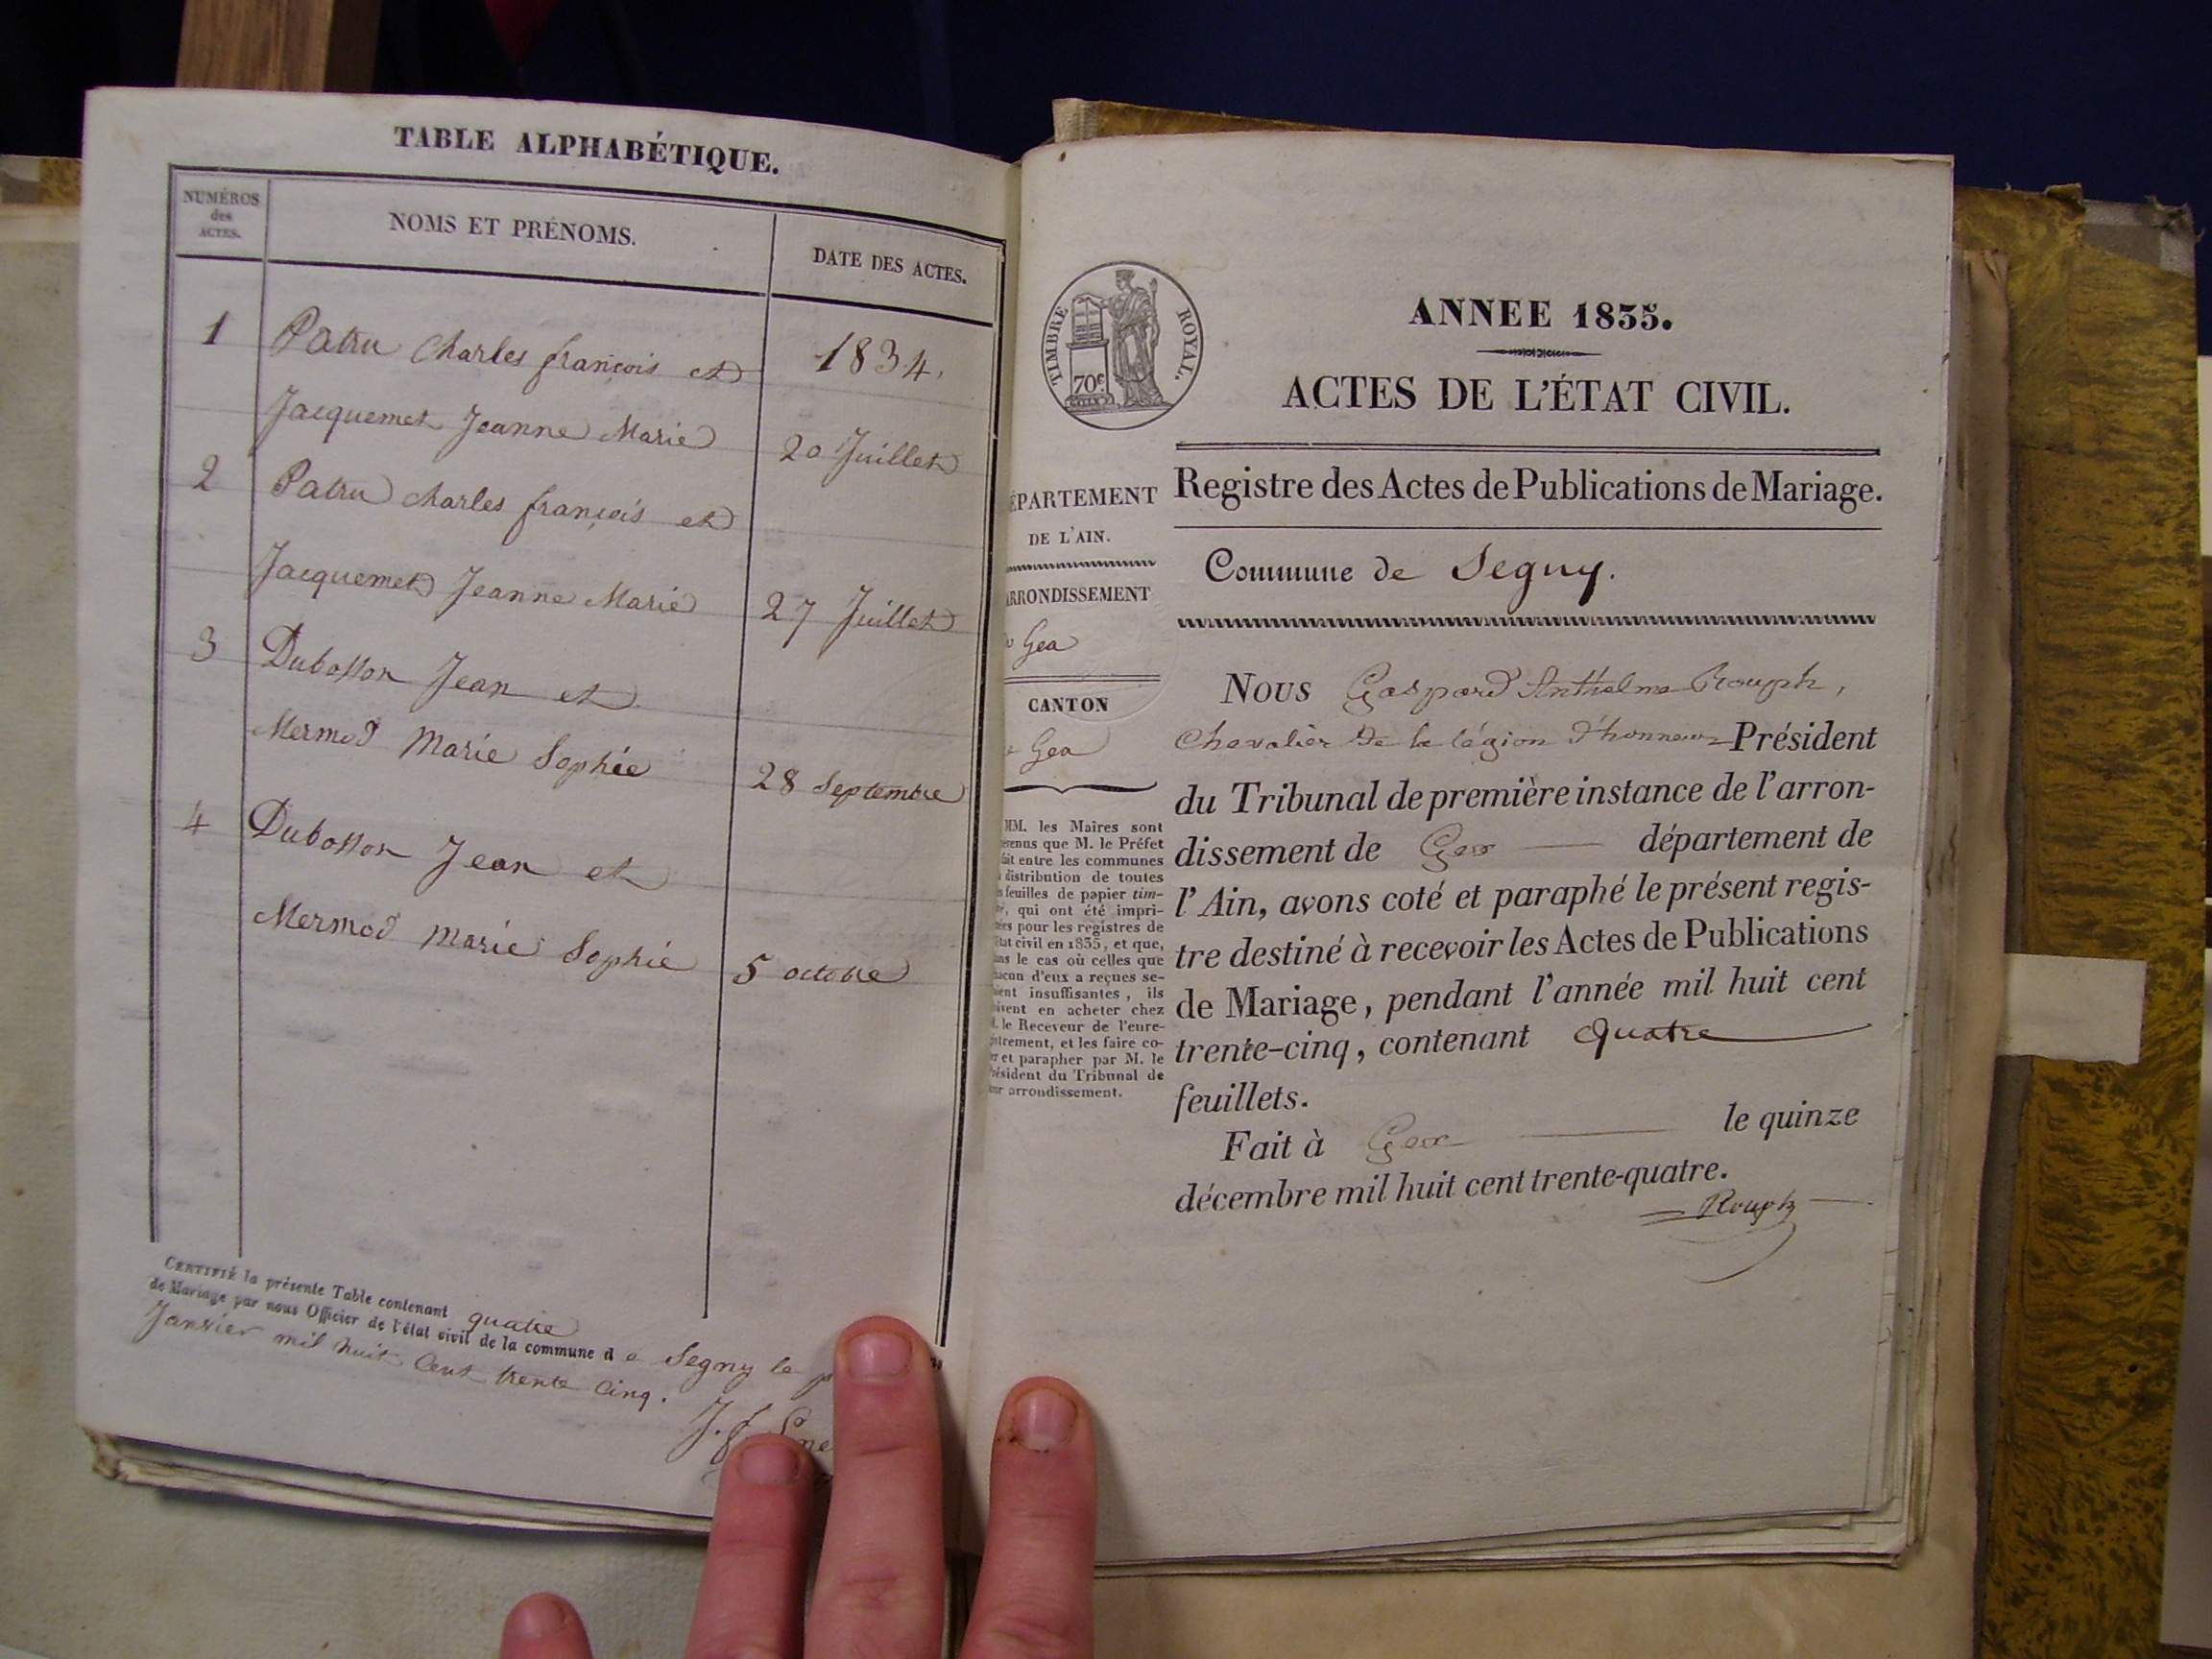 TABLE ALPHABÉTIQUE.
NUMÉROS
des
ACTES.
NOMS ET PRÉNOMS.
DATE DES ACTES.
1 Patru Charles françois et 1834.
Jacquemet Jeanne Marie 20 Juillet
2 Patru Charles françois et
Jacquemet Jeanne Marie 27 Juillet
3 Dubosson Jean et
Mermod Marie Sophie 28 Septembre
4 Dubosson Jean et
Mermod Marie Sophie 5 octobre
CERTIFIÉ la présente Table contenant quatre
de Mariage par nous Officier de l'état civil de la commune de Segny le
Janvier mil huit Cent trente Cinq.
J. f.
TIMBRE ROYAL.
70c.
ANNEE 1835.
ACTES DE L'ÉTAT CIVIL.
Registre des Actes de Publications de Mariage.
Commune de Segny.
ÉPARTEMENT
DE L'AIN.
RRONDISSEMENT
Gex
CANTON
Gex
MM. les Maires sont
venus que M. le Préfet
fait entre les communes
distribution de toutes
feuilles de papier tim-
qui ont été impri-
ées pour les régistres de
état civil en 1835, et que,
ans le cas où celles que
hacun d'eux a reçues se-
ient insuffisantes, ils
ivent en acheter chez
le Receveur de l'enre-
istrement, et les faire co-
er et parapher par M. le
résident du Tribunal de
ur arrondissement.
Nous Gaspard Anthelme Rouph,
Chevalier de la légion d'honneur Président
du Tribunal de première instance de l'arron-
dissement de Gex département de
l'Ain, avons coté et paraphé le présent regis-
tre destiné à recevoir les Actes de Publications
de Mariage, pendant l'année mil huit cent
trente-cinq, contenant quatre
feuillets.
Fait à Gex le quinze
décembre mil huit cent trente-quatre.
Rouph